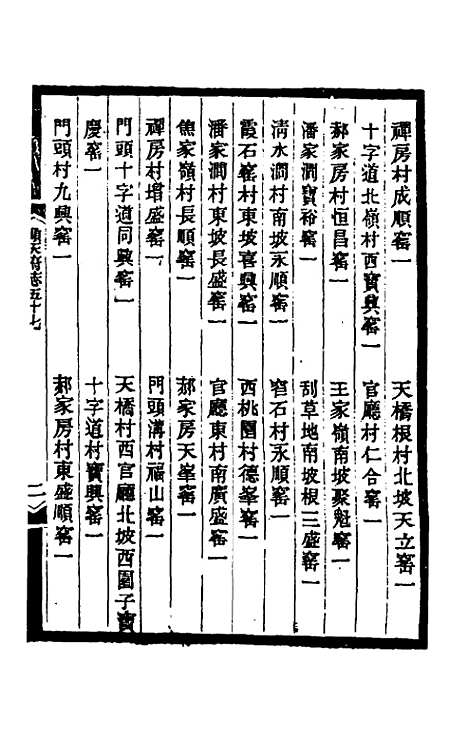 禪房村成順窰一　天橋根村北坡天立窰一
十字道北嶺村西寶興窰一　官廳村仁合窰一
郝家房村恒昌窰一　王家嶺南坡聚魁窰一
潘家澗寶裕窰一　刮草地南坡根三盛窰一
清水澗村南坡永順窰一　窄石村永順窰一
霞石窰村東坡喜興窰一　西桃園村德峯窰一
潘家澗村東坡長盛窰一　官廳東村南廣盛窰一
焦家嶺村長順窰一　郝家房天峯窰一
禪房村增盛窰一　門頭溝村福山窰一
門頭十字道同興窰一　天橋村西官廳北坡西園子寶
慶窰一　十字道村寶興窰一
門頭村九興窰一　郝家房村東盛順窰一
順天府志五十七